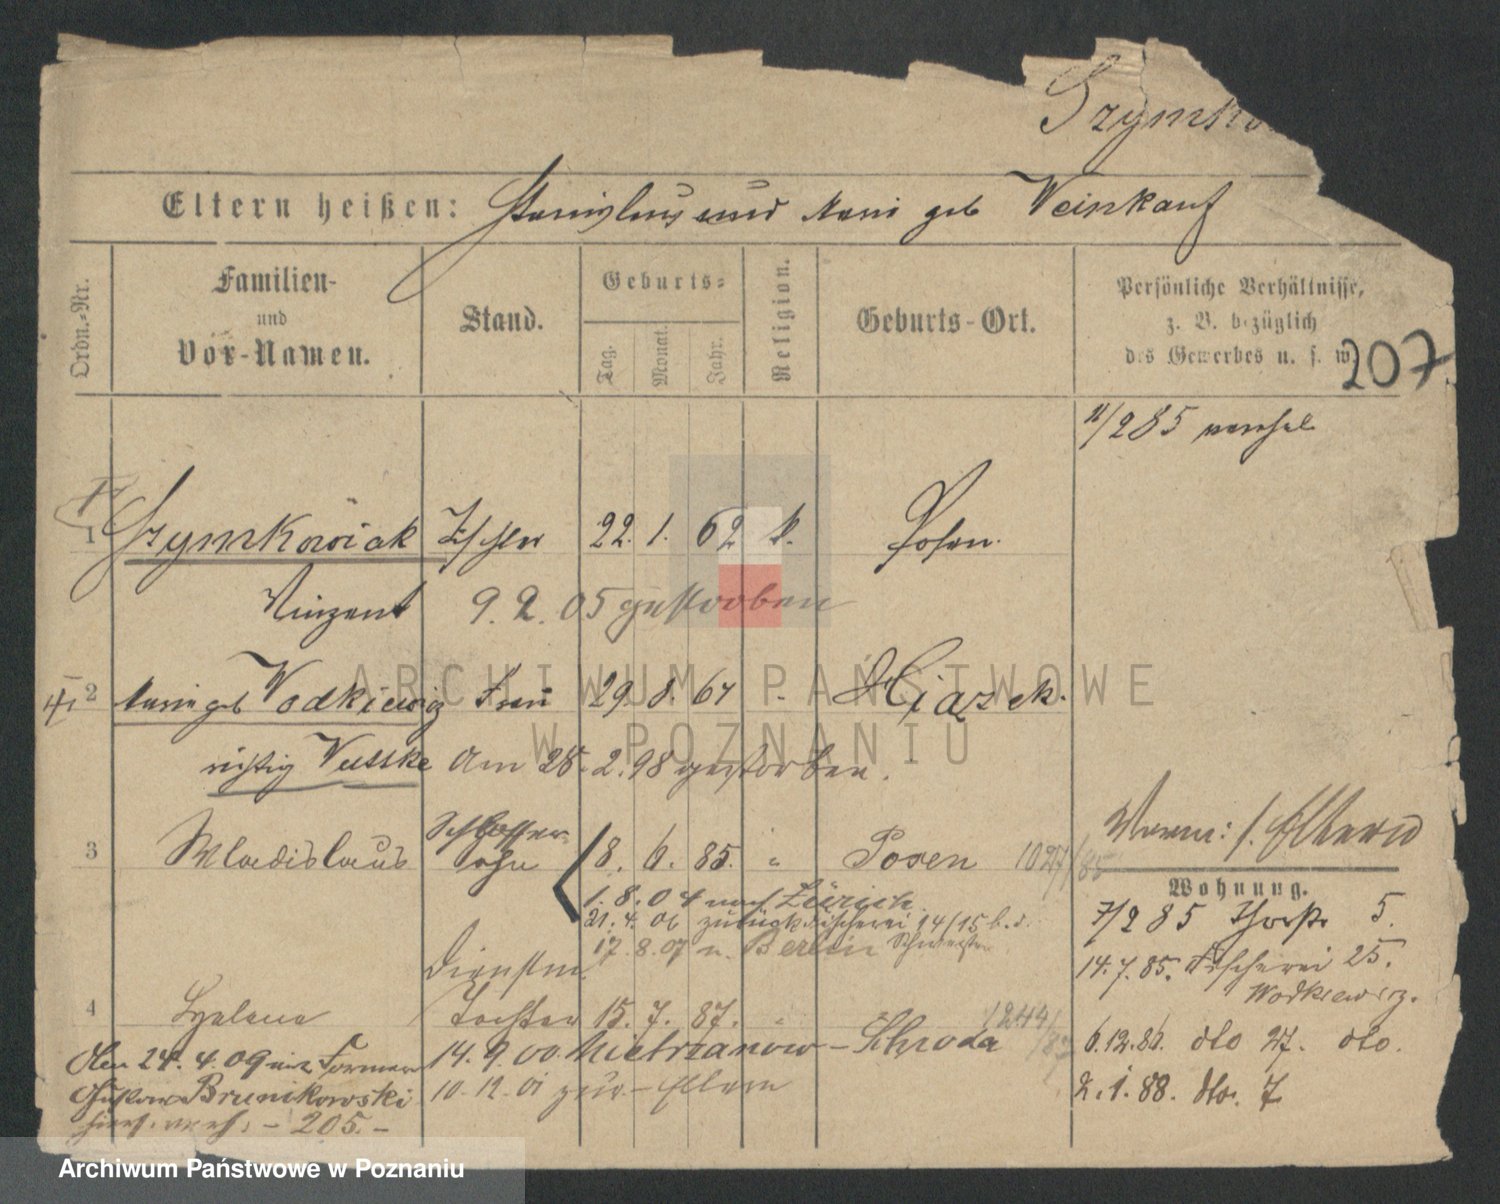 Szymko
Eltern heißen: Stanislaus und Marie geb Weinkauf
Ordn.-Nr.
Familien-
und
Vor-Namen.
Stand.
Geburts-
Tag.
Monat.
Jahr.
Religion.
Geburts-Ort.
Persönliche Verhältnisse,
z. B. bezüglich
des Gewerbes u. s. w.
207
11/2 85
1 Szymkowiak Tischler 22. 1. 62 k. Posen.
Vinzent 9. 2. 05 gestorben
2 Marie geb Wodkiewicz Frau 29. 8. 64 Hiązek.
richtig Wusske am 28. 2. 98 gestorben.
3 Wladislaus Schlosser- Sohn 8. 6. 85. " Posen 1027/85
Wohnung.
1. 8. 04 nach Zürich
21. 4. 06 zurück Fischerei 14/15 b. d.
17. 8. 07 n. Berlin Schwester
7/2 85 5.
14. 7. 85. Fischerei 25.
Wodkiewicz.
Dienstm.
4 Helene Tochter 15. 7. 87. " 1244/87
14. 9. 00. Mietrzanowo - Schroda
10. 12. 01 zur. Eltern
6. 12. 86. dto 27. dto.
2. 1. 88. dto. 7
24. 4. 09 mit Former
Gustav Brunikowski
- 205. -
ARCHIWUM PAŃSTWOWE
W POZNANIU
Archiwum Państwowe w Poznaniu